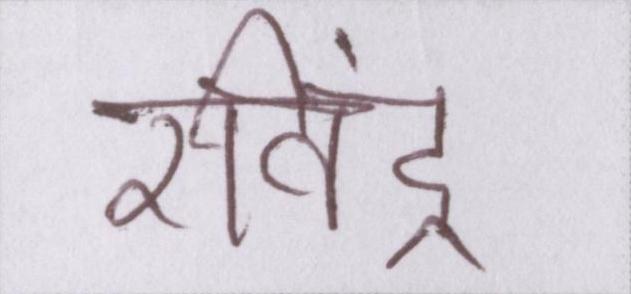 रविंद्र